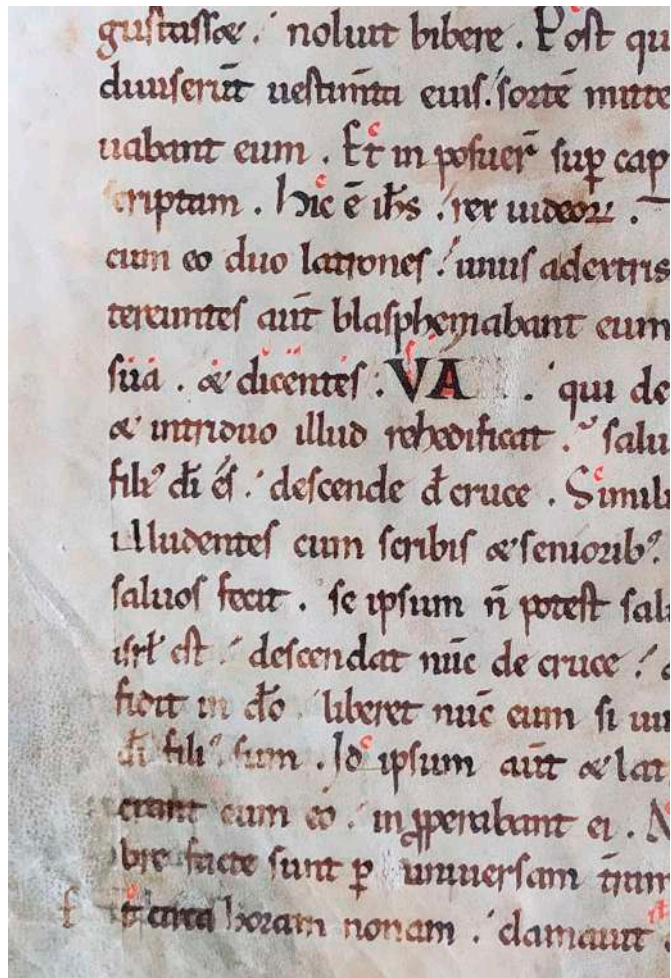 gustasset. noluit bibere. Post qu
diuiserūt uestimta eius. sortē mitte
uabant eum. Et inposuer̄ sup cap
criptam. hic ē ihs rex iudeoꝝ.
cum eo duo latrones. unus adextris
tereuntes aūt blasphemabant eum
sua. & dicentes. VA. qui de
& intriduo illud rehedificat. salu
filiꝰ dī es. descende d̄ cruce. Simili
illudentes cum scribis & senioribꝰ.
saluos fecit. se ipsum n̄ potest salu
isrl̄ est. descendat nūc de cruce.
fidit in dō. liberet nūc eum si uu
dī filiꝰ sum. Id ipsum aūt & lat
erant cum eo. inꝓperabant ei. N
bre facte sunt ꝑ uniuersam
t circa horam nonam. clamauit